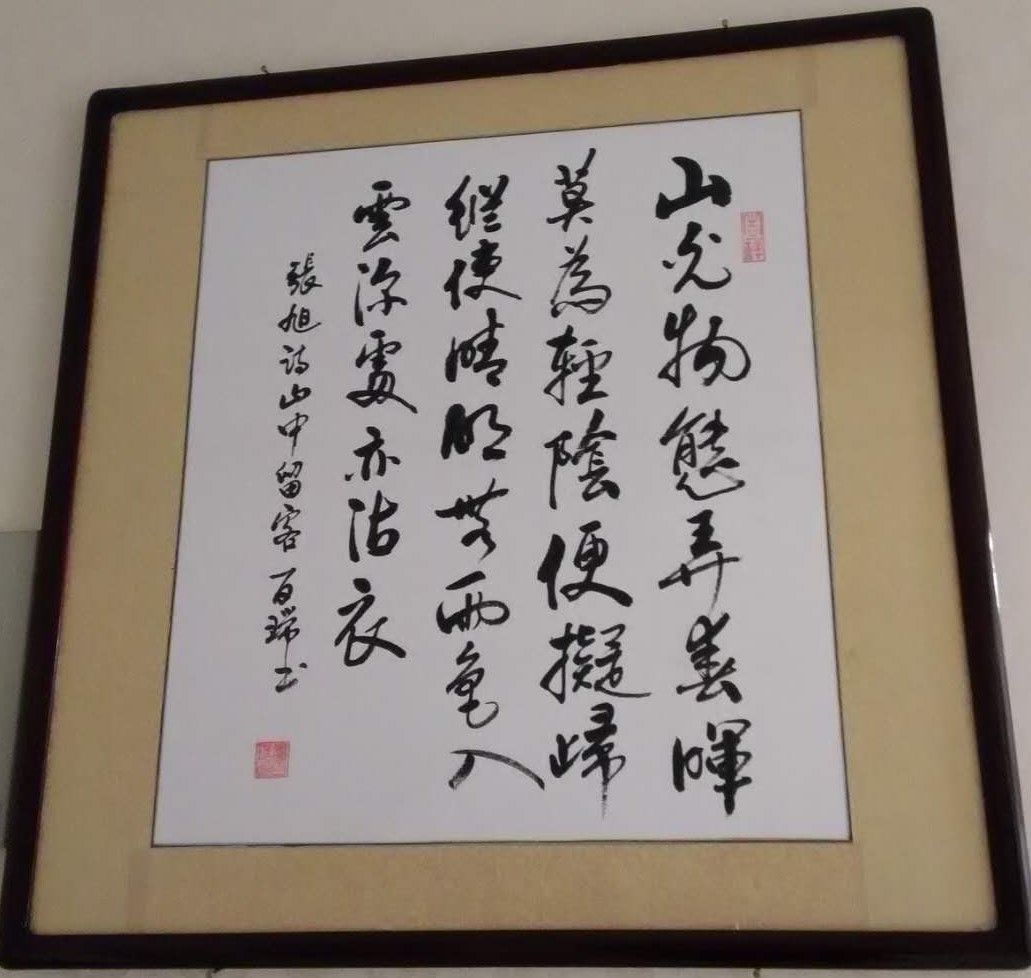 山光物態弄春暉
莫為輕陰便擬歸
縱使晴明無雨色入
雲深處亦沾衣
張旭詩山中留客 百瑞书